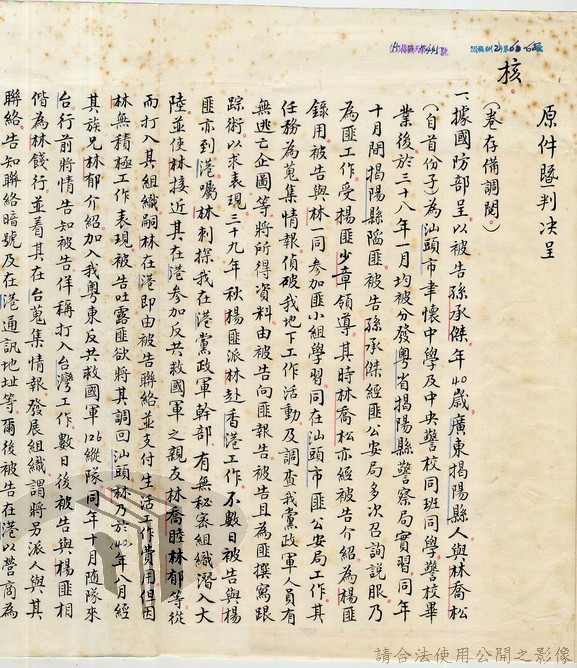 原件暨判决呈
核。
(卷存備調閱)
一、據國防部呈:以被告孫承傑,年40歲,廣東揭陽縣人,與林喬松
(自首份子)為汕頭市聿懷中學及中央警校同班同學,警校畢
業後,於三十八年一月均被分發粵省揭陽縣警察局實習,同年
十月間揭陽縣陷匪,被告孫承傑經匪公安局多次召詢說服,乃
為匪工作,受楊匪少章領導,其時林喬松亦經被告介紹為楊匪
錄用,被告與林一同參加匪小組學習,同在汕頭市匪公安局工作,其
任務為蒐集情報、偵破我地下工作活動及調查我黨政軍人員有
無逃亡企圖等,將所得資料由被告向匪報告,被告且為匪撰寫跟
踪術,以求表現,三十九年秋,楊匪派林赴香港工作,不數日被告與楊
匪亦到港,囑林刺探我在港黨政軍幹部,有無秘密組織潛入大
陸,並使林接近其在港參加反共救國軍之親友林喬睦林郁等,從
而打入其組織,嗣林在港即由被告聯絡,並支付生活工作費用,但因
林無積極工作表現,被告吐露匪欲將其調回汕頭,林乃於40年八月經
其族兄林郁介紹加入我粵東反共救國軍126縱隊,同年十月隨隊來
台,行前將情告知被告,佯稱打入台灣工作,數日後被告與楊匪相
偕為林餞行,並着其在台蒐集情報,發展組織,謂將另派人與其
聯絡,告知聯絡暗號及在港通訊地址等,爾後被告在港以營商為
請合法使用公開之影像